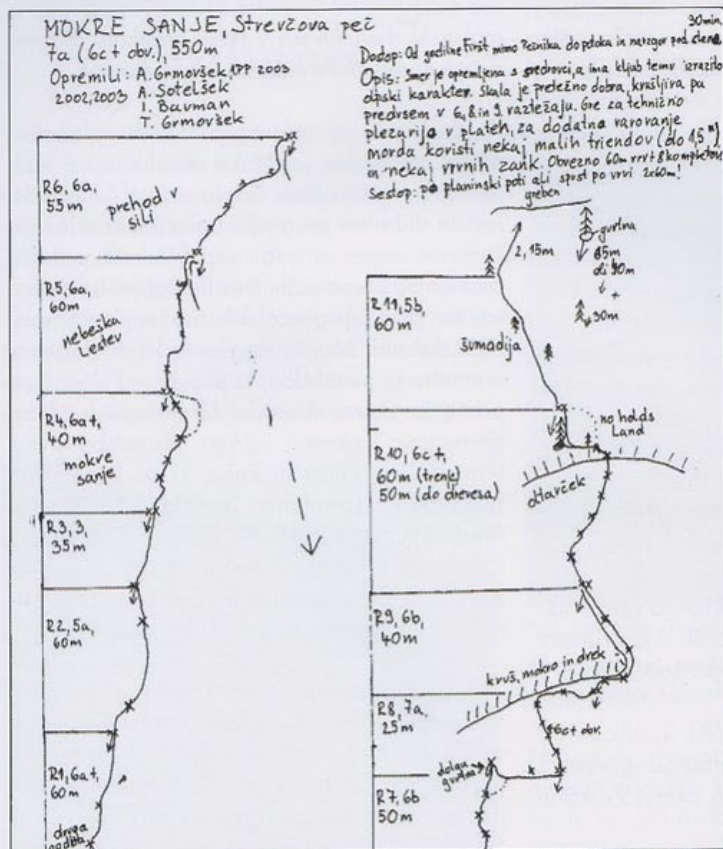 MOKRE SANJE, Strevčova peč
7a (6c+ obv.), 550m
Opremili: A. Grmovšek, KPP 2003
2002, 2003 A. Sotelšek
I. Bauman
T. Grmovšek
30min
Dostop: Od gostilne Firšt mimo Pečnika do potoka in navzgor pod steno
Opis: Smer je opremljena s svedrovci, a ima kljub temu izrazito
alpski karakter. Skala je pretežno dobra, krušljiva pa
predvsem v 6, 8 in 9. raztežaju. Gre za tehnično
plezarijo v platah, za dodatno varovanje
morda koristi nekaj malih friendov (do 1,5")
in nekaj vrvnih zank. Obvezno 60m vrvi + 8 kompletov
Sestop: po planinski poti ali spust po vrvi 2x60m!
greben
R6, 6a,
55m
prehod v
sili
R5, 6a,
60m
nebeška
Ledev
R4, 6a+,
40m
mokre
sanje
R3, 3,
35m
R2, 5a,
60m
R1, 6a+,
60m
druga
2, 15m
gurtna
+
30m
R11, 5b,
60m
šumadija
no holds
Land
R10, 6c+,
60m (trenk)
50m (do drevesa)
Havček
R9, 6b,
40m
kruš, mokro in drek
R8, 7a,
25m
6c+ obv.
dolga
gurtna
R7, 6b
50m